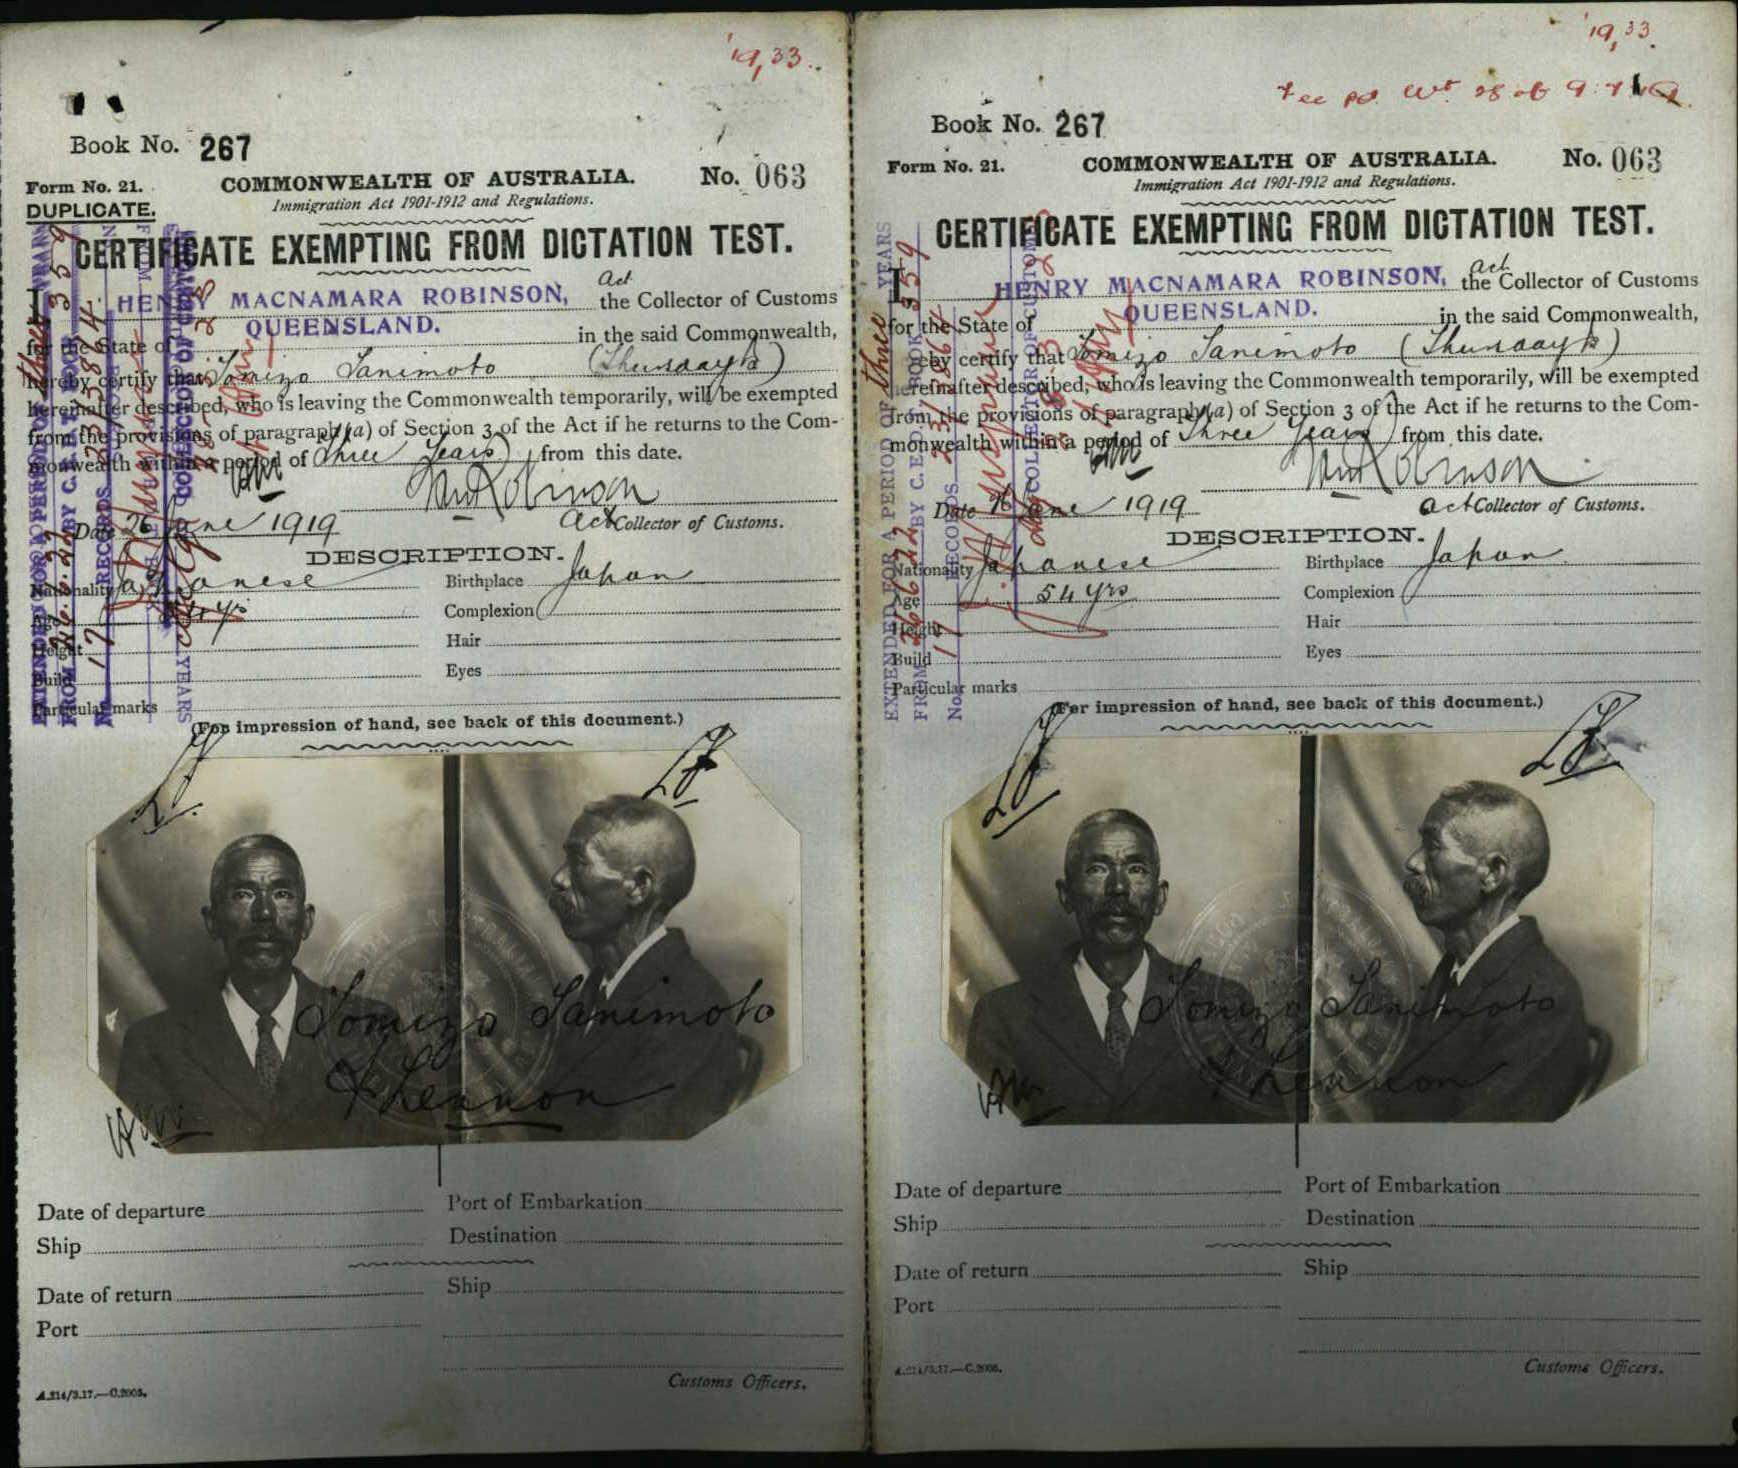 '19,33.
Book No. 267
Form No. 21.
COMMONWEALTH OF AUSTRALIA.
No. 063
DUPLICATE.
Immigration Act 1901-1912 and Regulations.
CERTIFICATE EXEMPTING FROM DICTATION TEST.
I, HENRY MACNAMARA ROBINSON, Act the Collector of Customs
for the State of QUEENSLAND. in the said Commonwealth,
hereby certify that Tomizo Tanimoto (Thursday Is)
hereinafter described, who is leaving the Commonwealth temporarily, will be exempted
from the provisions of paragraph (a) of Section 3 of the Act if he returns to the Com-
monwealth within a period of Three Years from this date.
HMRobinson
Date 26 June 1919
Act Collector of Customs.
DESCRIPTION.
Nationality Japanese
Birthplace Japan
Age 54 yrs
Complexion
Height
Hair
Build
Eyes
Particular marks
(For impression of hand, see back of this document.)
Tomizo Tanimoto
Date of departure
Port of Embarkation
Ship
Destination
Date of return
Ship
Port
Customs Officers.
A.214/3.17.—C.2005.
'19,33.
Book No. 267
Form No. 21.
COMMONWEALTH OF AUSTRALIA.
No. 063
Immigration Act 1901-1912 and Regulations.
CERTIFICATE EXEMPTING FROM DICTATION TEST.
I, HENRY MACNAMARA ROBINSON, Act the Collector of Customs
for the State of QUEENSLAND. in the said Commonwealth,
hereby certify that Tomizo Tanimoto (Thursday Is)
hereinafter described, who is leaving the Commonwealth temporarily, will be exempted
from the provisions of paragraph (a) of Section 3 of the Act if he returns to the Com-
monwealth within a period of Three Years from this date.
HMRobinson
Date 26 June 1919
Act Collector of Customs.
DESCRIPTION.
Nationality Japanese
Birthplace Japan
Age 54 yrs
Complexion
Height
Hair
Build
Eyes
Particular marks
(For impression of hand, see back of this document.)
EXTENDED FOR A PERIOD OF three YEARS
FROM 26.6.22 BY C. E. D. BOOK 359
No. 17 RECORDS
COLLECTOR OF CUSTOMS
Tomizo Tanimoto
Date of departure
Port of Embarkation
Ship
Destination
Date of return
Ship
Port
Customs Officers.
A.214/3.17.—C.2005.